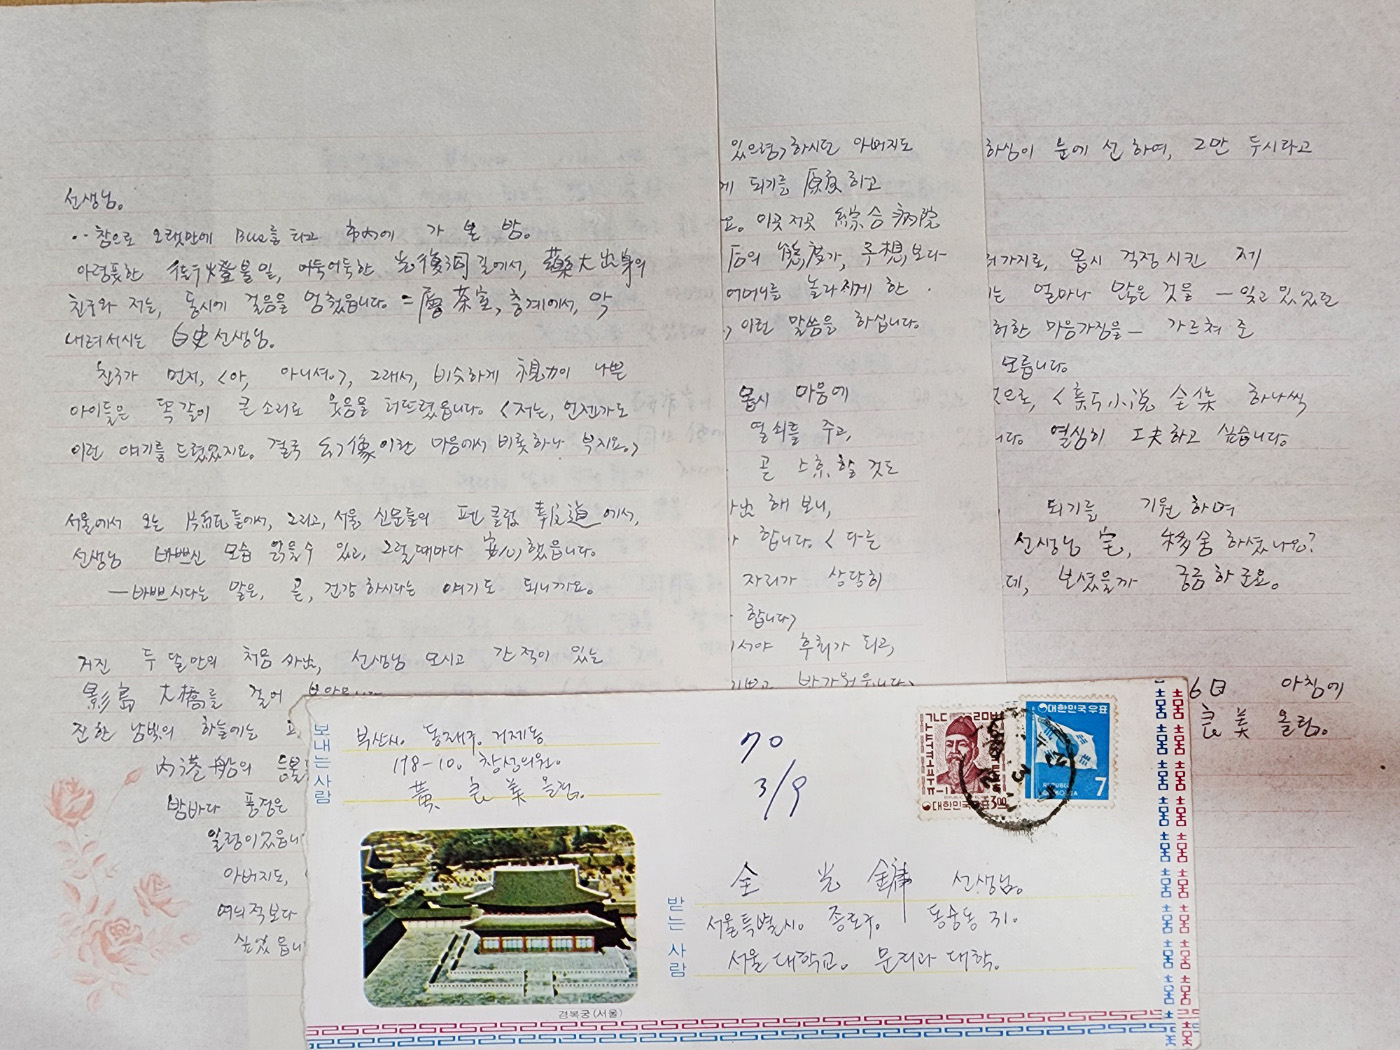 선생님。
‥참으로 오랫만에 Bus를 타고 市內에 가 본 밤。
아렴풋한 街燈불일, 어둑어둑한 光復洞 길에서, 藥大出身의
친구와 저는, 동시에 걸음을 멈췄읍니다 = 茶室, 층계에서, 막
내려서시는 白史 선생님。
친구가 먼저, <아, 아니셔?>, 그래서, 비슷하게 視力이 나쁜
아이들은 똑같이 큰 소리로 웃음을 터뜨렸읍니다. <저는, 언젠가도
이런 얘기를 드렸었지요. 결국 幻像이란 마음에서 비롯하나 부지요.>
서울에서 오는 片紙들에서, 그리고, 서울 신문들의 펜클럽 報道에서,
선생님 바쁘신 모습 읽을 수 있고, 그럴 때마다 安心했읍니다.
—바쁘시다는 말은, 곧, 건강하시다는 얘기도 되니까요.
거진 두 달만의 처음 外出, 선생님 모시고 간 적이 있는
影島 大橋를 걸어
진한 남빛의 하늘에는
內港船의 등불
밤바다 풍경은
일렁이었읍니
아버지도,
여늬 적보다
싶었읍니
있으렴> 하시던 아버지도
게 되기를 原하고
요. 이곳저곳 綜合病院
의 態度가, 予想보다
어머니를 놀라시게 한
, 이런 말씀을 하십니다.
몹시 마음에
열쇠를 주고,
곧 스 할 것도
해 보니,
합니다. < 다른
자리가 상당히
합니다>
서야 후회가 되고,
반가웠읍니다.
하심이 눈에 선하여, 그만 두시라고
여가지로, 몹시 걱정시킨 제
는 얼마나 많은 것을 — 잊고 있었든
허한 마음가짐을 — 가르쳐 준
모릅니다.
것으로, < 小說 全集 하나씩
니다. 열심히 工夫하고 싶습니다.
되기를 기원하며
선생님 宅, 移舍하셨나요?
데, 보셨을까 궁금하군요。
6日 아침에
良美 올림。
보내는 사람
부산시. 동래구. 거제동
178-10. 창성의원.
黃 良 美 올림.
경복궁(서울)
70
3/9
대한민국우표 3.00
대한민국우표
REPUBLIC OF KOREA
7
받는 사람
金 光 鏞 선생님。
서울특별시. 종로구. 동숭동 31.
서울대학교. 문리과 대학.